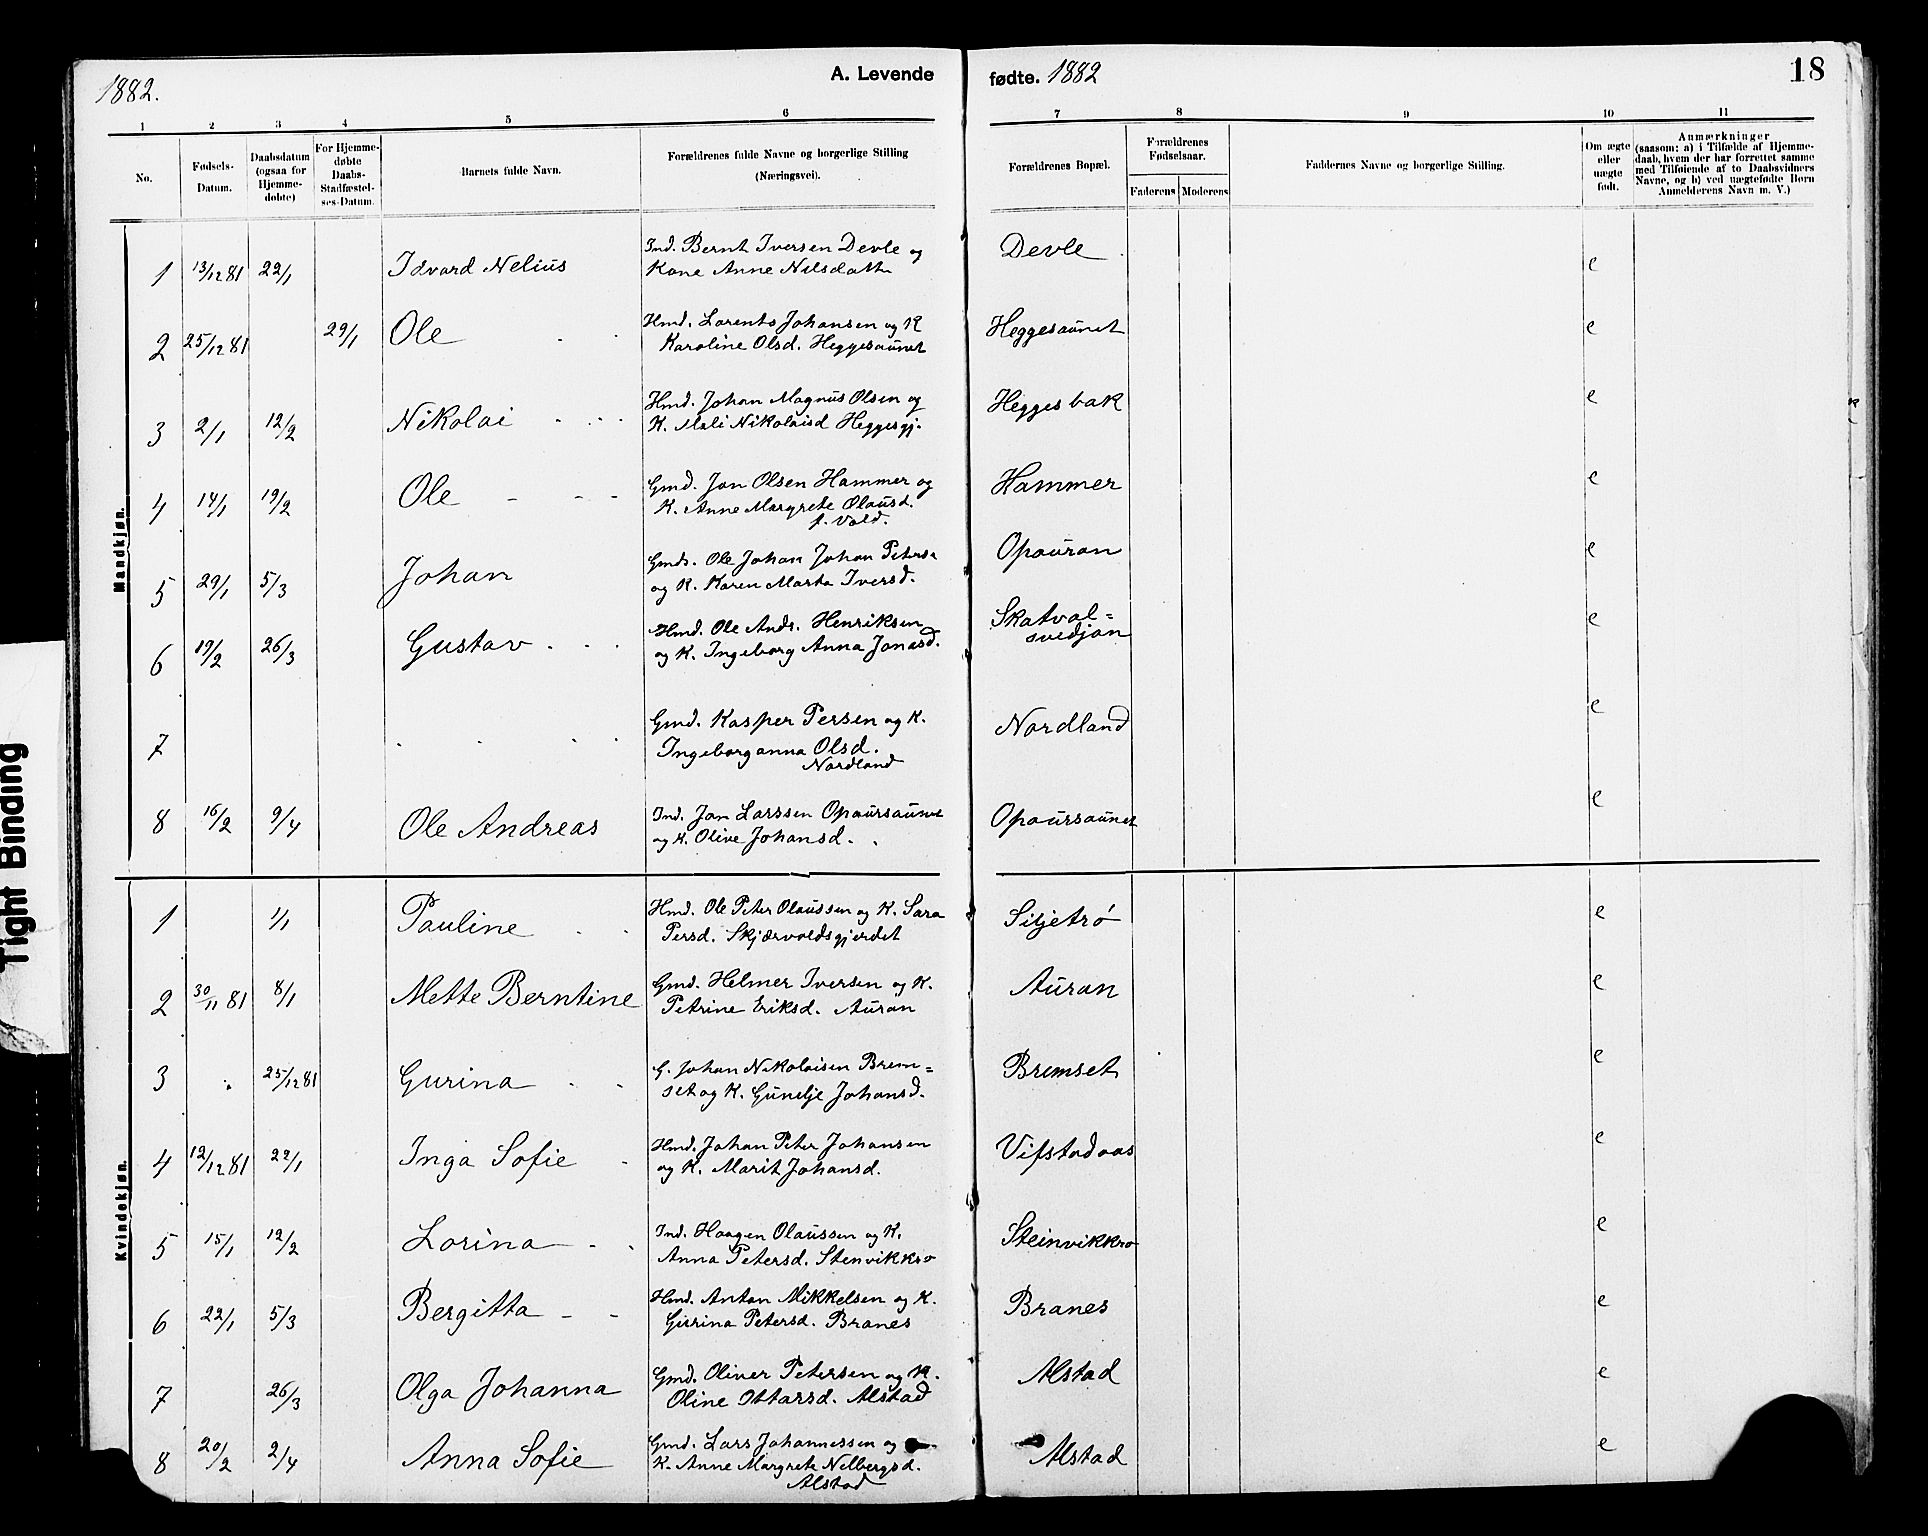 1882.
A. Levende
fødte. 1882
18
1 2 3 4 5 6 7 8 9 10 11
No.
Fødsels-
Datum.
Daabsdatum
(ogsaa for
Hjemme-
døbte)
For Hjemme-
døbte
Daabs-
Stadfæstel-
ses-Datum.
Barnets fulde Navn.
Forældrenes fulde Navne og borgerlige Stilling
(Næringsvei).
Forældrenes Bopæl.
Forældrenes
Fødselsaar.
Faderens Moderens
Faddernes Navne og borgerlige Stilling.
Om ægte
eller
uægte
født.
Anmærkninger
(saasom: a) i Tilfælde af Hjemme-
daab, hvem der har forrettet samme
med Tilføiende af to Daabsvidners
Navne, og b) ved uægtefødte Børn
Anmelderens Navn m. V.)
Mandkjøn.
1 13/12 81 22/1 Edvard Nelius Ind. Bernt Iversen Devle og Devle e
Kone Anne Nilsdatter
2 25/12 81 29/1 Ole Hmd. Lorents Johansen og K Heggesaunet e
Karoline Olsd. Heggesaunet
3 2/1 12/2 Nikolai Hmd. Johan Magnus Olsen og Heggesbak e
K. Mali Nikolaisd Heggesgj.
4 14/1 19/2 Ole Gmd. Jon Olsen Hammer og Hammer e
K. Anne Margrete Olausd.
f. Vold.
5 29/1 5/3 Johan Gmds. Ole Johan Johan Peters. Opauran e
og K. Karen Marta Iversd.
6 19/2 26/3 Gustav Hmd. Ole Andr. Henriksen Skatval=
svedjan e
og K. Ingeborg Anna Jonasd.
7 Gmd. Kasper Persen og K. Nordland e
Ingeborganna Olsd.
Nordland
8 16/2 9/4 Ole Andreas Ind. Jon Larssen Opaursaunet Opaursaunet e
og K. Olive Johansd.
Kvindekjøn.
1 1/1 Pauline Hmd. Ole Peter Olaussen og K. Sara Siljetrø e
Persd. Skjærvoldsgjerdet
2 30/11 81 8/1 Mette Berntine Gmd. Helmer Iversen og K. Auran e
Petrine Eriksd. Auran
3 25/12 81 Gurina G. Johan Nikolaisen Brem= Bremset e
set og K. Gunelje Johansd.
4 12/12 81 22/1 Inga Sofie Hmd. Johan Peter Johansen Vifstadaas e
og K. Marit Johansd.
5 15/1 12/2 Lorina Ind. Haagen Olaussen og K. Steinvikkro e
Anna Petersd. Stenvikkro
6 22/1 5/3 Bergitta Hmd. Anton Mikkelsen og K. Branes e
Petersd. Branes
7 26/3 Olga Johanna Gmd. Oliver Petersen og K. Alstad e
Oline Ottarsd. Alstad
8 20/2 2/4 Anna Sofie Gmd. Lars Johannessen og Alstad e
K. Anne Margrete Nelbergsd.
Alstad
Tight Binding